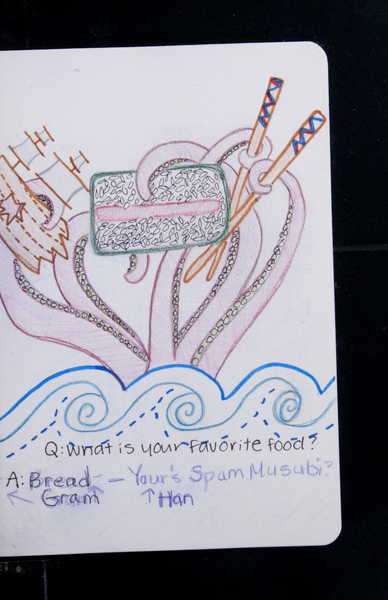 Q: What is your favorite food?
A: Bread - Your's Spam Musubi?
← Gram ↑ Han